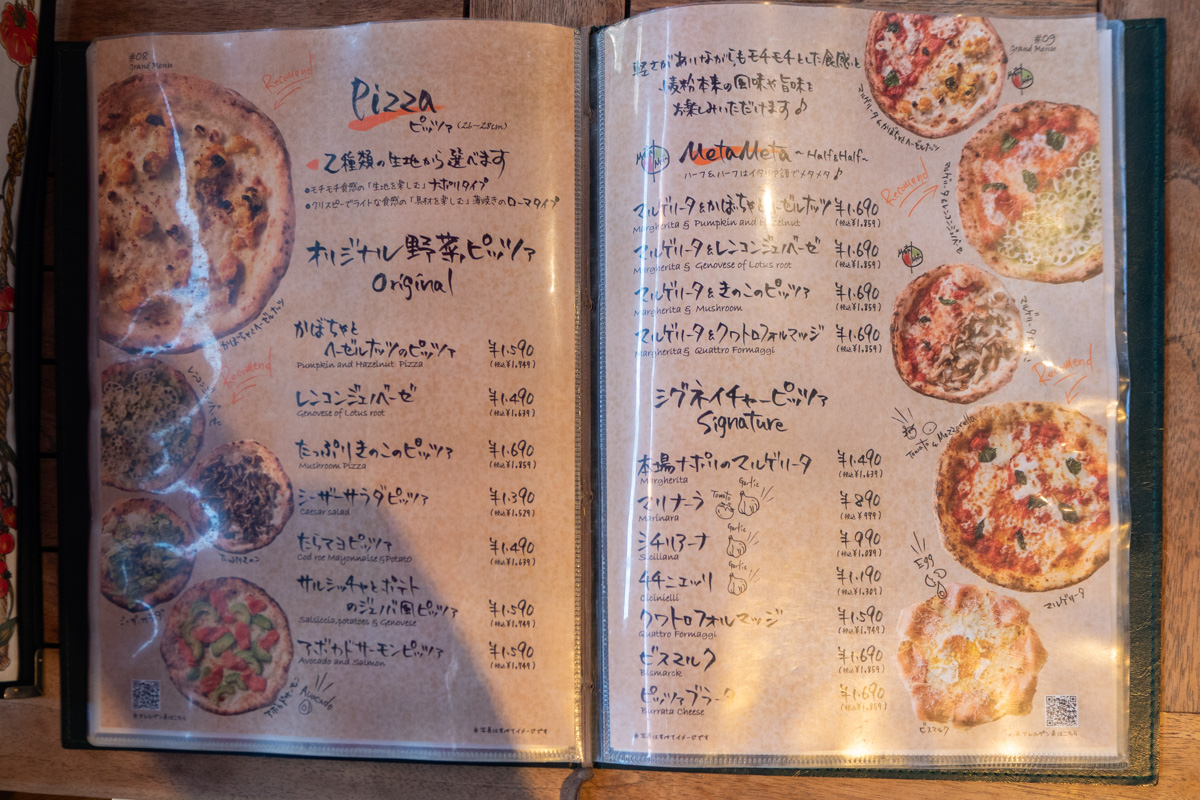 #08
Grand Menu
Recomend
Pizza
ピッツァ (26~28cm)
2種類の生地から選べます
●モチモチ食感の「生地を楽しむ」ナポリタイプ
●クリスピーでライトな食感の「具材を楽しむ」薄焼きのローマタイプ
オリジナル野菜ピッツァ
Original
かぼちゃとヘーゼルナッツ
かぼちゃと
ヘーゼルナッツのピッツァ ¥1.590
Pumpkin and Hazelnut Pizza (税込¥1.749)
Recomend
レンコンジェノベーゼ ¥1.490
Genovese of Lotus root (税込¥1.639)
たっぷりきのこのピッツァ ¥1.690
Mushroom Pizza (税込¥1.859)
シーザーサラダピッツァ ¥1.390
Caesar salad (税込¥1.529)
たらマヨピッツァ ¥1.490
Cod roe Mayonnaise & Potato (税込¥1.639)
サルシッチャとポテト
のジェノバ風ピッツァ ¥1.590
Salsiccia, potatoes & Genovese (税込¥1.749)
アボカドサーモンピッツァ ¥1.590
Avocado and Salmon (税込¥1.749)
Avocado
※アレルゲン表はこちら
※写真はすべてイメージです
#09
Grand Menu
軽さがありながらもモチモチとした食感と
小麦粉本来の風味や旨味を
お楽しみいただけます♪
マルゲリータ&かぼちゃヘーゼルナッツ
MetaMeta ~Half&Half~
ハーフ&ハーフはイタリア語でメタメタ♪
Recomend
マルゲリータ&レンコンジェノベーゼ
マルゲリータ&かぼちゃとヘーゼルナッツ ¥1.690
Margherita & Pumpkin and Hazelnut (税込¥1.859)
マルゲリータ&レンコンジェノベーゼ ¥1.690
Margherita & Genovese of Lotus root (税込¥1.859)
マルゲリータ&きのこのピッツァ ¥1.690
Margherita & Mushroom (税込¥1.859)
マルゲリータ&クワトロフォルマッジ ¥1.690
Margherita & Quattro Formaggi (税込¥1.859)
Recomend
シグネイチャーピッツァ
Signature
Tomato & Mozzarella
本場ナポリのマルゲリータ ¥1.490
Margherita (税込¥1.639)
マリナーラ Tomato Garlic ¥890
Marinara (税込¥979)
シチリアーナ Garlic ¥990
Siciliana (税込¥1.089)
チチニエッリ Garlic ¥1.190
Cicinielli (税込¥1.309)
Egg
マルゲリータ
クワトロフォルマッジ ¥1.590
Quattro Formaggi (税込¥1.749)
ビスマルク ¥1.690
Bismarck (税込¥1.859)
ピッツァブラータ ¥1.690
Burrata Cheese (税込¥1.859)
ビスマルク
※写真はすべてイメージです
※アレルゲン表はこちら